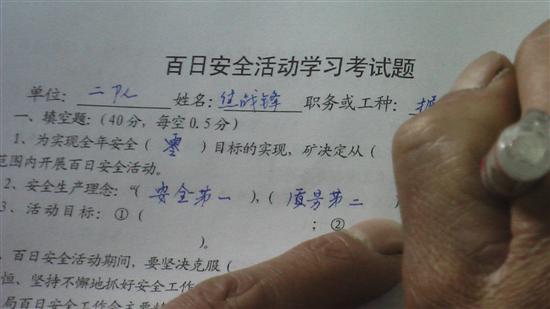 百日安全活动学习考试题
单位: 二队 姓名: 战锋 职务或工种: 掘
一、填空题:(40分,每空0.5分)
1、为实现全年安全( 零 )目标的实现,矿决定从(
范围内开展百日安全活动。
2、安全生产理念:“( 安全第一 ),( 质量第二 )
3、活动目标:①( ;②
)。
、百日安全活动期间,要坚决克服(
恒、坚持不懈地抓好安全工作
局百日安全工作会主要